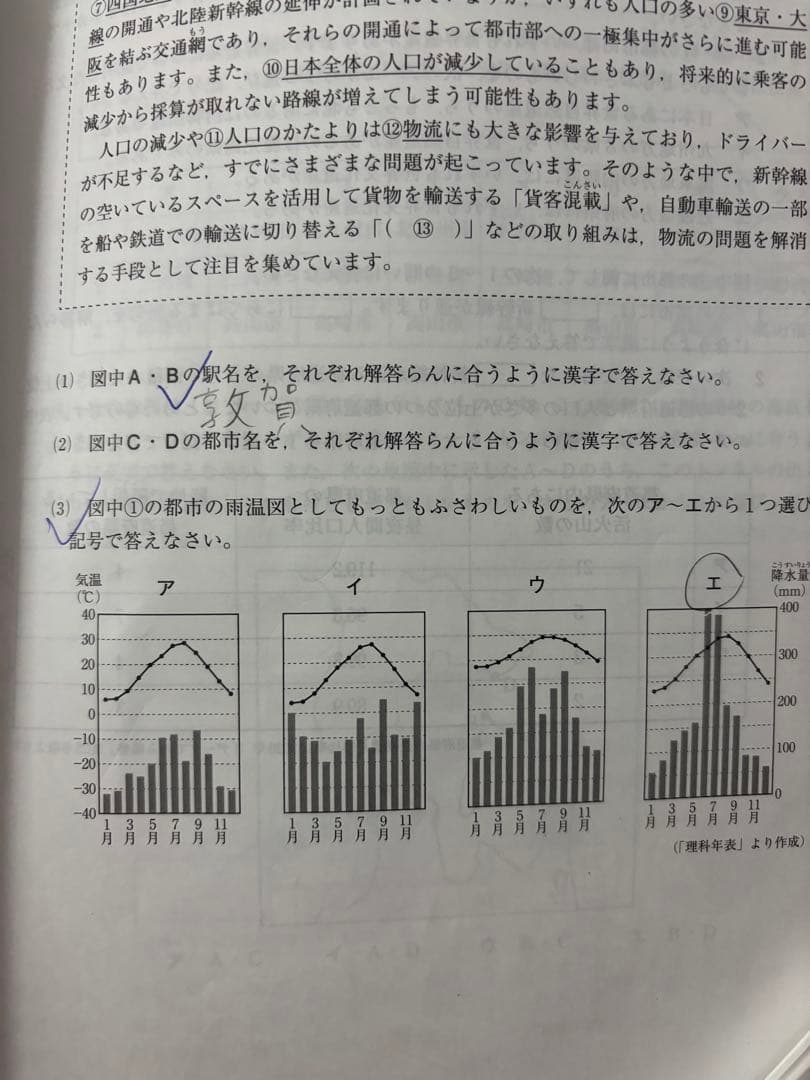 線の開通や北陸新幹線の延伸が計画されていますが，いずれも人口の多い⑨東京・大
阪を結ぶ交通網であり，それらの開通によって都市部への一極集中がさらに進む可能
性もあります。また，⑩日本全体の人口が減少していることもあり，将来的に乗客の
減少から採算が取れない路線が増えてしまう可能性もあります。
人口の減少や⑪人口のかたよりは⑫物流にも大きな影響を与えており，ドライバー
が不足するなど，すでにさまざまな問題が起こっています。そのような中で，新幹線
の空いているスペースを活用して貨物を輸送する「貨客混載」や，自動車輸送の一部
を船や鉄道での輸送に切り替える「(　⑬　)」などの取り組みは，物流の問題を解消
する手段として注目を集めています。
(1) 図中A・Bの駅名を，それぞれ解答らんに合うように漢字で答えなさい。
敦賀
(2) 図中C・Dの都市名を，それぞれ解答らんに合うように漢字で答えなさい。
(3) 図中①の都市の雨温図としてもっともふさわしいものを，次のア～エから1つ選び
記号で答えなさい。
気温
(℃)
ア
イ
ウ
エ
降水量
(mm)
40
30
20
10
0
-10
-20
-30
-40
400
300
200
100
0
1月 3月 5月 7月 9月 11月
1月 3月 5月 7月 9月 11月
1月 3月 5月 7月 9月 11月
1月 3月 5月 7月 9月 11月
(「理科年表」より作成)